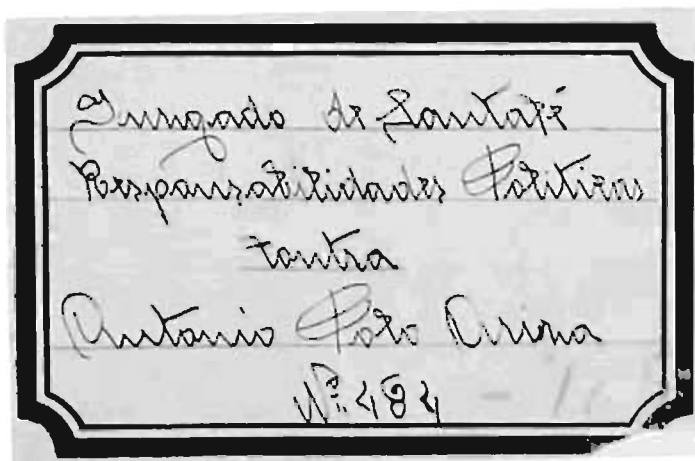 Jurgado de Santafé
Responsabilidades Politicas
contra
Antonio Polo
Nº. 484